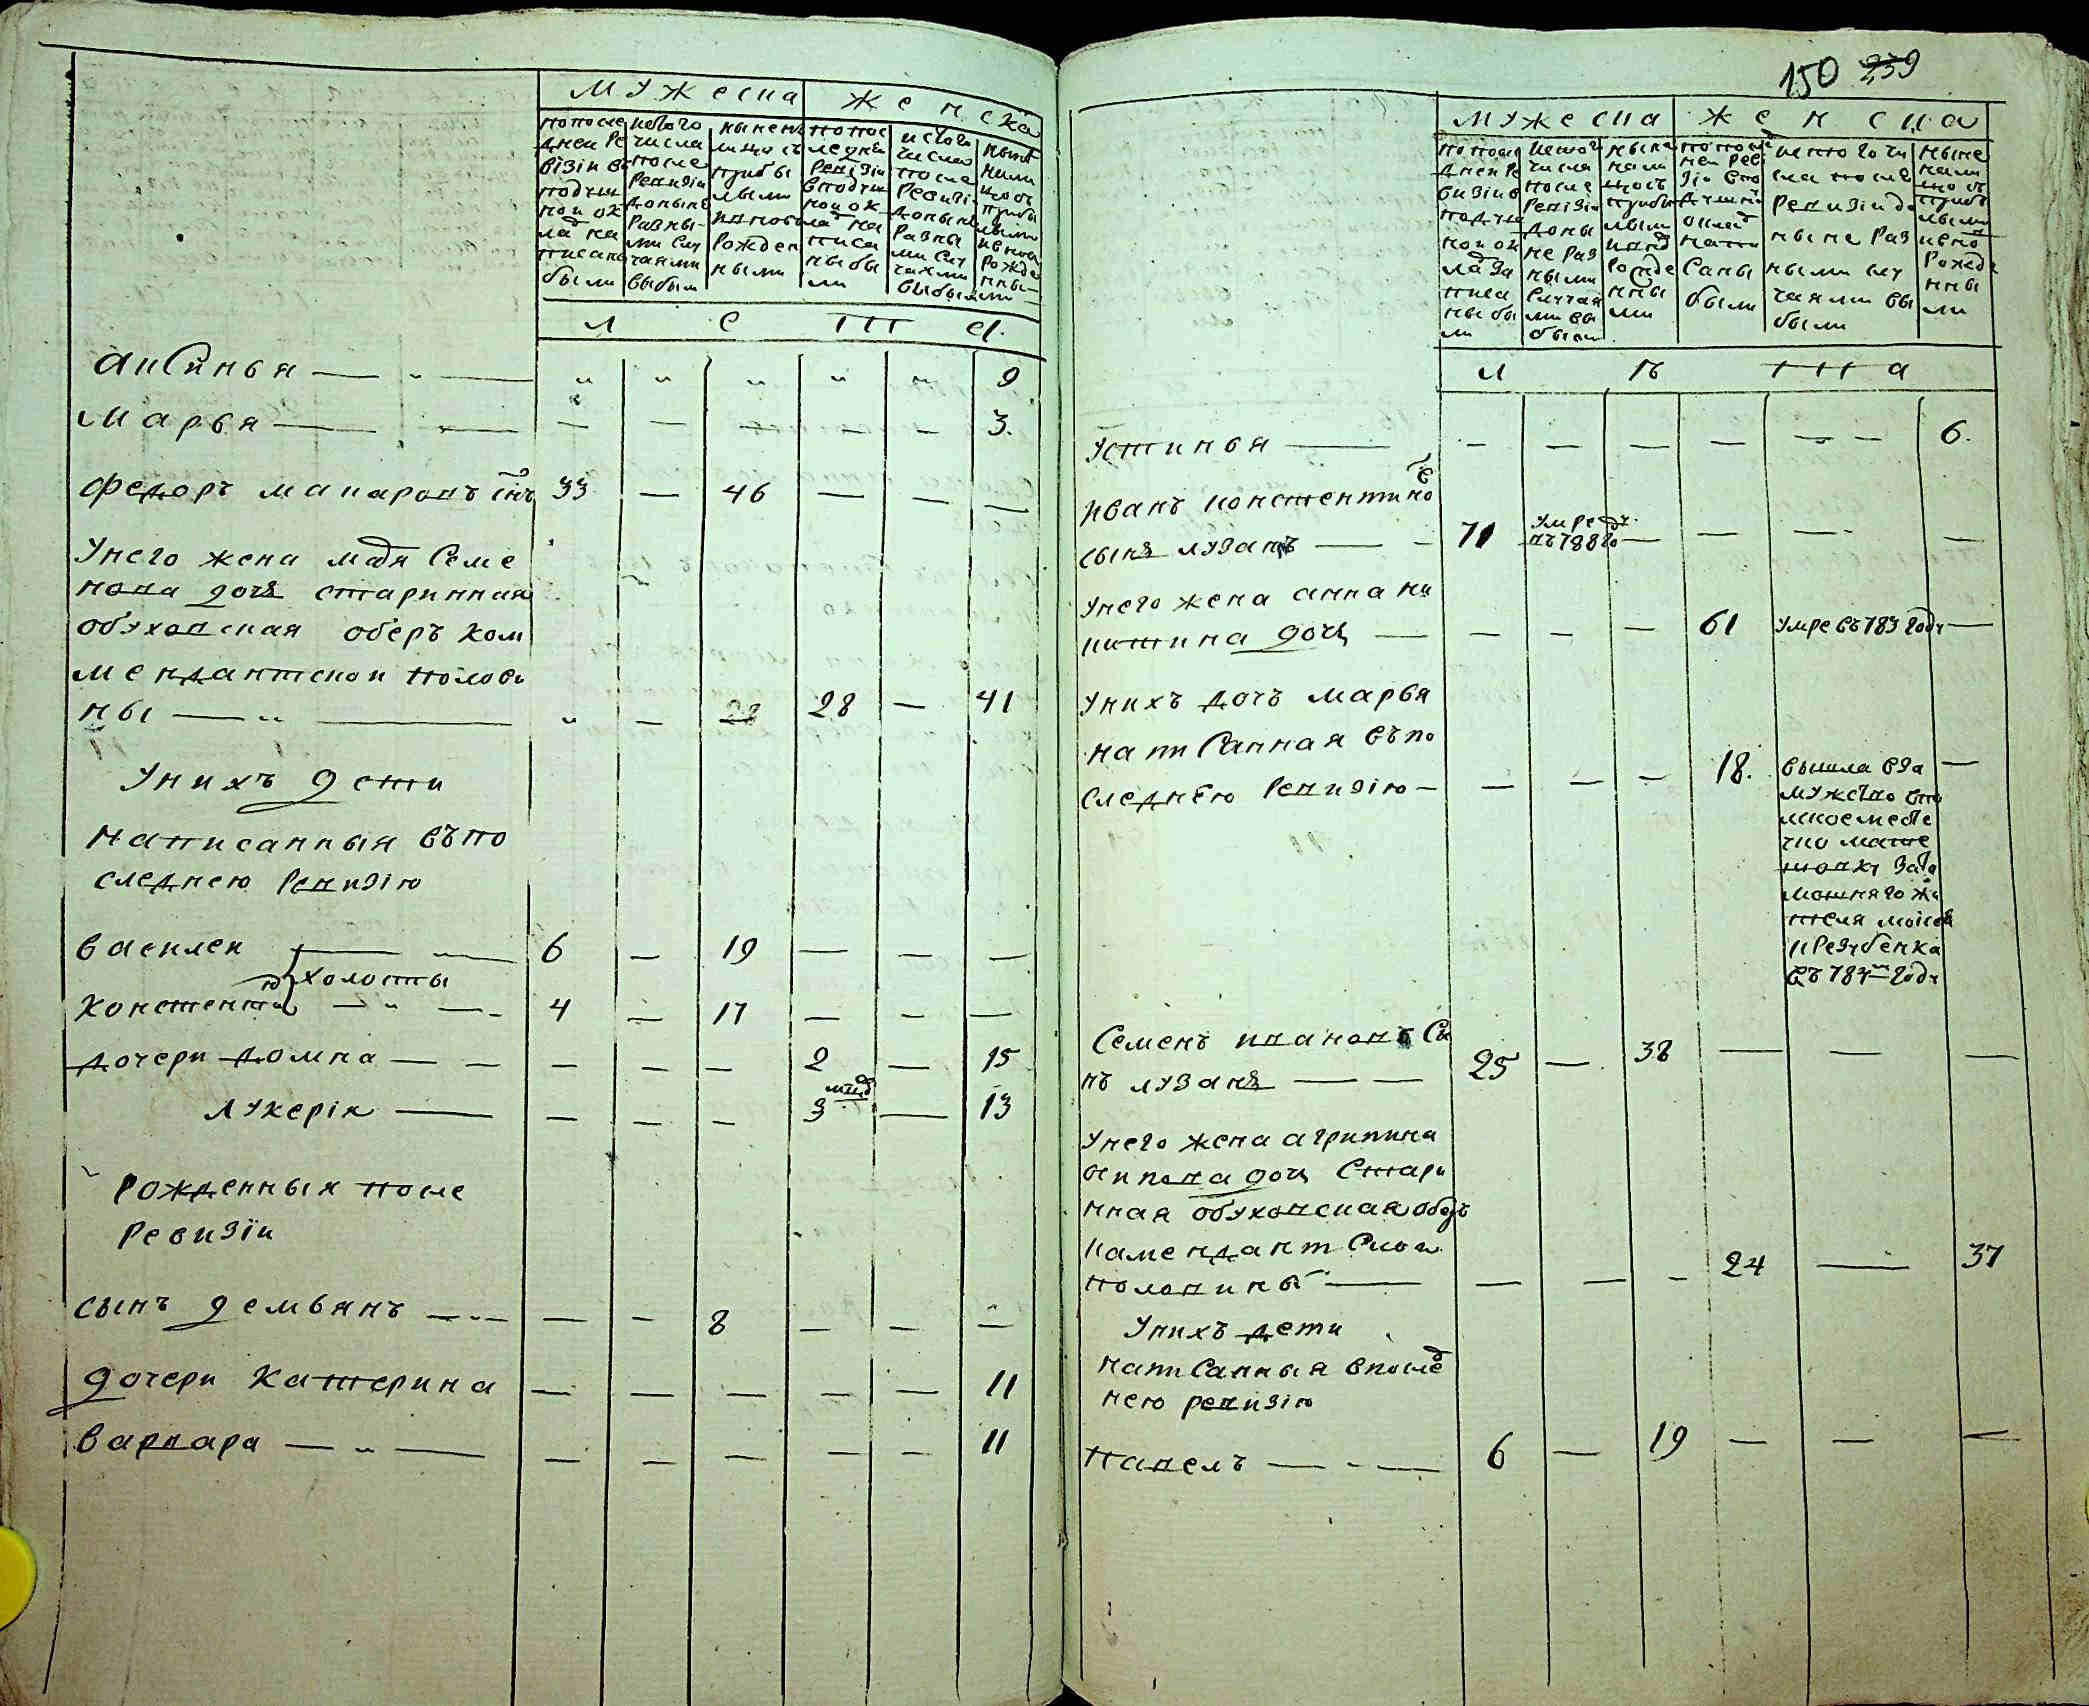 мужеска женска
попоследней ревизіи в подушной оклад написаны были
ис того числа после ревизіи доныне разными случаями выбыли
ныне налицо съ прибылыми и вновь рожденными
по последней ревизіи в подушной оклад написаны были
ис того числа после ревизіи доныне разными случаями выбыли
ныне налицо съ прибылыми и вновь рожденными
л е т а
аксинья — — " " " " " 9
марья — — — — — — — 3.
федоръ макаровъ снъ 33 — 46 — — —
унего жена
нова дочь старинная
обуховская оберъ ком
мендантской полови
ны — " — " — 28 28 — 41
унихъ дети
написанныя въпо
следнею ревизію
василей — — 6 — 19 — — —
холосты
констентин — — 4 — 17 — — —
дочери домна — — — — — 2 — 15
лукерія — — — — 3 — 13
рожденныя после
ревизіи
сынъ демьянъ — — — — 8 — — —
дочери катерина — — — — — 11
варвара — — — — — — — 11
150 239
мужеска женска
по последней ревизіи в подушной оклад написаны были
ис того числа после ревизіи доныне разными случаями выбыли
ныне налицо съ прибылыми и вновь рожденными
по последней ревизіи в подушной оклад написаны были
ис того числа после ревизіи доныне разными случаями выбыли
ныне налицо съ прибылыми и вновь рожденными
л ѣ т а
устинья — — — — — — 6.
иванъ констентинов
сынъ лузанъ — — 71 умре въ 788 го — — — —
унего жена анна ни
китина дочь — — — — 61 умре въ 783 году —
унихъ дочь марья
написанная въпо
следнею ревизію — — — — 18. вышла вза —
мужство
местечко
жителя
въ 784м году
Семенъ ивановъ сы
нъ лузанъ — — 25 — 38 — — —
унего жена агрипина
осипова дочь стари
нная обуховская оберъ
камендантской
половины — — — — 24 — 37
унихъ дети
написанныя впослед
нею ревизію
павелъ — — — 6 — 19 — — —